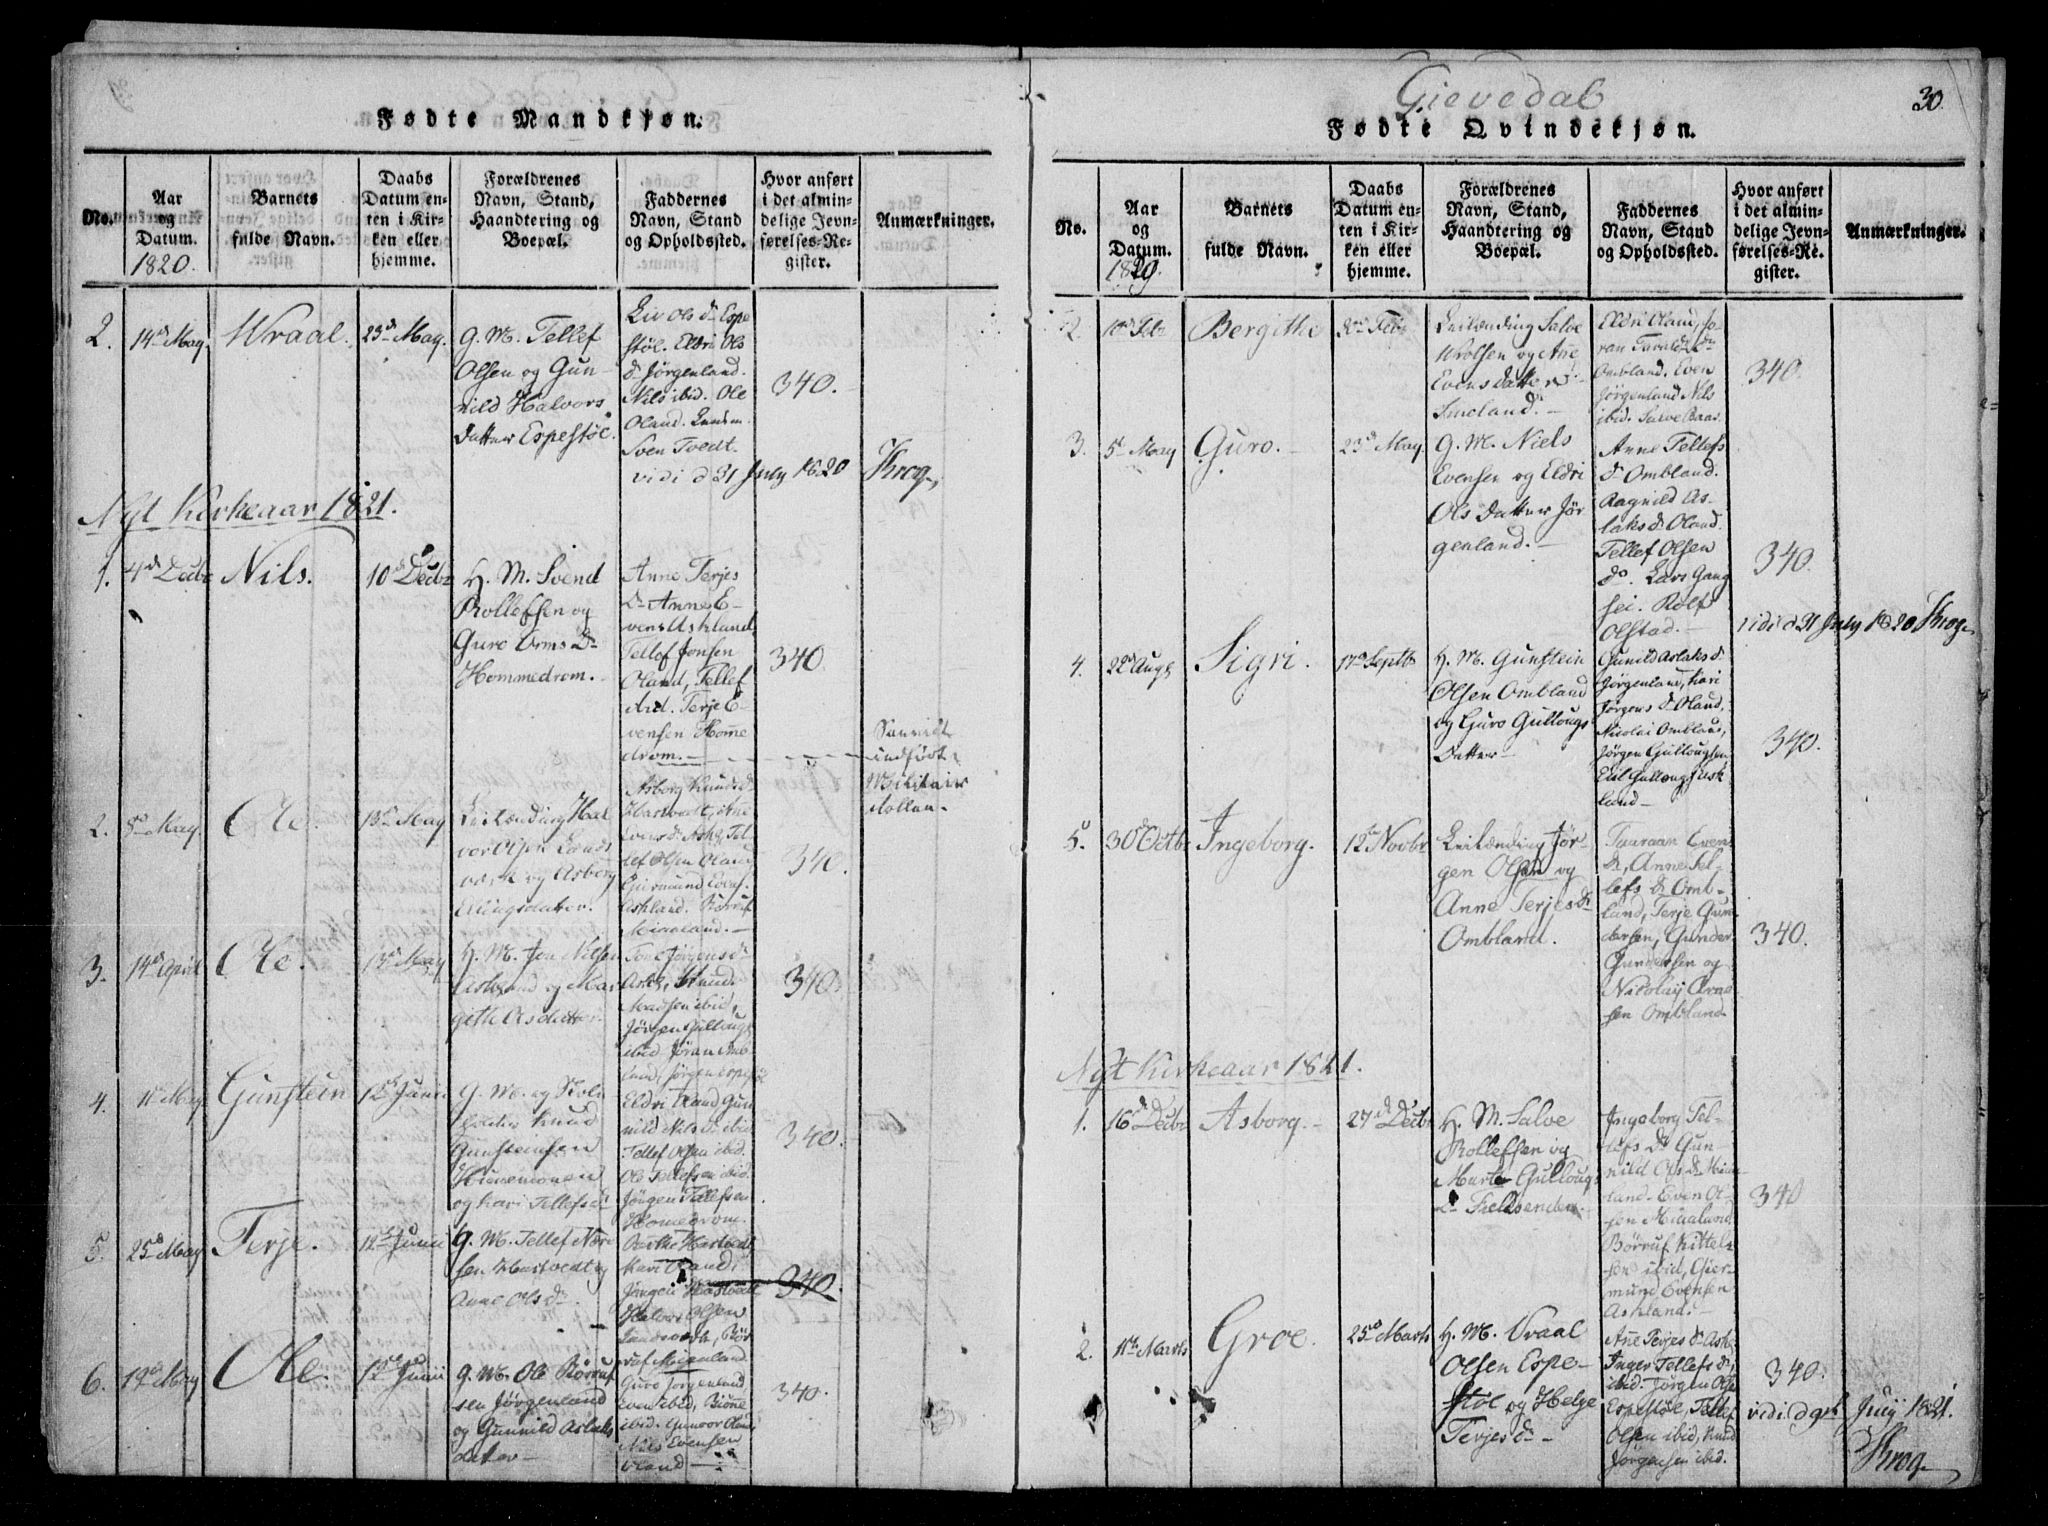 Fødte Mandkjøn.
No.
Aar
og
Datum.
1820.
Barnets
fulde Navn.
Daabs
Datum en-
ten i Kir-
ken eller
hjemme.
Forældrenes
Navn, Stand,
Haandtering og
Boepæl.
Faddernes
Navn, Stand
og Opholdssted.
Hvor anført
i det almin-
delige Jevn-
førelses-Re-
gister.
Anmærkninger.
2. 14de May. Wraal. 23de May.
G. M. Tellef
Olsen og Gun-
nild Halvors
Datter Espestøl.
Liv Ols Dr Espe
støl. Eldri Ols
Dr Jørgenland.
Nils ibid. Ole
Oland.
Sven Tvedt.
340.
vidi d 31 July 1820 Krog.
Nyt Kirkeaar 1821.
1. 4de Decbr Nils. 10de Decbr
H. M. Svend
Rollefsen og
Guro Orms Dr
Hommedrom.
Anne Terjes
Dr Anne E-
vens Ashland,
Tellef Jonsen
Oland, Tellef
ibid. Terje E-
vensen Home
drom.
340.
2. 8de May. Ole. 13de May
Leilænding Hal
vor Olsen Lands
værk og Asborg
Ellingsdatter.
Asborg Knuds Dr
Harstvedt, Ane
Evens Dr Ashl, Tel
lef Olsen Oland
Giermund Evens.
Ashland. Børruf
Miaaland.
340.
3. 14de April Ole. 13de May
H. M. Jon Nilsen
Ashland og Mar
geth Asdatter.
Tone Jørgens Dr
Ashl, Knud
Madsen ibid,
Jørgen Gullougs
ibid Jøran Omb
land, Jørgen Espestøl
340.
4. May Gunstein 12te Junii
G. M. og Skole
holder Knud
Gunsteinsen
og Kari Tellefs Dr
Eldri Oland Gun
nild Nils Dr ibid
Tellef Olsen ibid.
Ole Tellefsen ibid.
Jørgen Tellefsen
Homedrom.
340.
5. 25de May Terje. 12te Junii
G. M. Tellef
sen Harstvedt og
Anne Ols Dr
Harstvedt,
Kari Oland,
Jørgen Harstvedt
Halvor Olsen
Landsværk, Bør
ruf Miaaland
340.
6. May Ole. 12te Junii
G. M. Ole Børruf
sen Jørgenland
og Gunnild Aslaks
datter
Guro Jørgenland
Even ibid, Biørn
ibid. Gunvor Oland,
Nils Evensen
Oland
340.
Gievedal
30.
Fødte Qvindekjøn.
No.
Aar
og
Datum.
1820.
Barnets
fulde Navn.
Daabs
Datum en-
ten i Kir-
ken eller
hjemme.
Forældrenes
Navn, Stand,
Haandtering og
Boepæl.
Faddernes
Navn, Stand
og Opholdssted.
Hvor anført
i det almin-
delige Jevn-
førelses-Re-
gister.
Anmærkninger.
2. Febr Bergithe Febr
Leilænding Salve
Wrolsen og Ane
Evens datter
Smeland.
Eldri Oland, Jø-
ran Taralds Dr
Ombland. Even
Jørgenland Nils
ibid. Salve
340.
3. 5te May Guro. 23de May
G. M. Niels
Evensen og Eldri
Ols Datter Jør
genland.
Anne Tellefs
Dr Ombland.
Ragnild As-
laks Dr Oland.
Tellef Olsen
do. Lars Gang
sei. Rolf
Olstad.
340.
vidi d 31 July 1820 Krog
4. 22de Augs Sigri. 17de Septbr
H. M. Gunstein
Olsen Ombland
og Guro Gullougs
Datter
Gunild Aslaks Dr
Jørgenland, Kari
Jørgens Dr Oland,
Nicolai Ombland,
Jørgen Gullougsen
Eul Gullougs Ask
land
340.
5. 30te Octbr Ingeborg. 12te Novbr
Leilænding Jør-
gen Olsen og
Anne Terjes Dr
Ombland.
Taaraan Evens
Dr, Anne Tel-
lefs Dr Omb-
land, Terje Gun
dersen, Gunder
Gundersen og
Nicolaij Arne
sen Ombland
340.
Nyt Kirkeaar 1821.
1. 16de Decbr Asborg. 27de Decbr
H. M. Salve
Rollefsen og
Marte Gullougs
Dr Fieldsenden.
Ingeborg Tel-
lefs Dr Gun
nild Ols Dr Miaa
land. Even Ol-
sen Miaaland
Børruf Kittel-
sen ibid, Gier-
mund Evensen
Ashland.
340
2. 11te Marts Groe. 25de Marts
H. M. Vraal
Olsen Espe-
støl og Helge
Terjes Dr
Ane Terjes Dr Ashl.
Inger Tellefs Dr,
ibid. Jørgen Olse
Espestøl, Tellef
Olsen ibid, Knud
Jørgensen ibid.
340.
vidi d 9de July 1821.
Krog